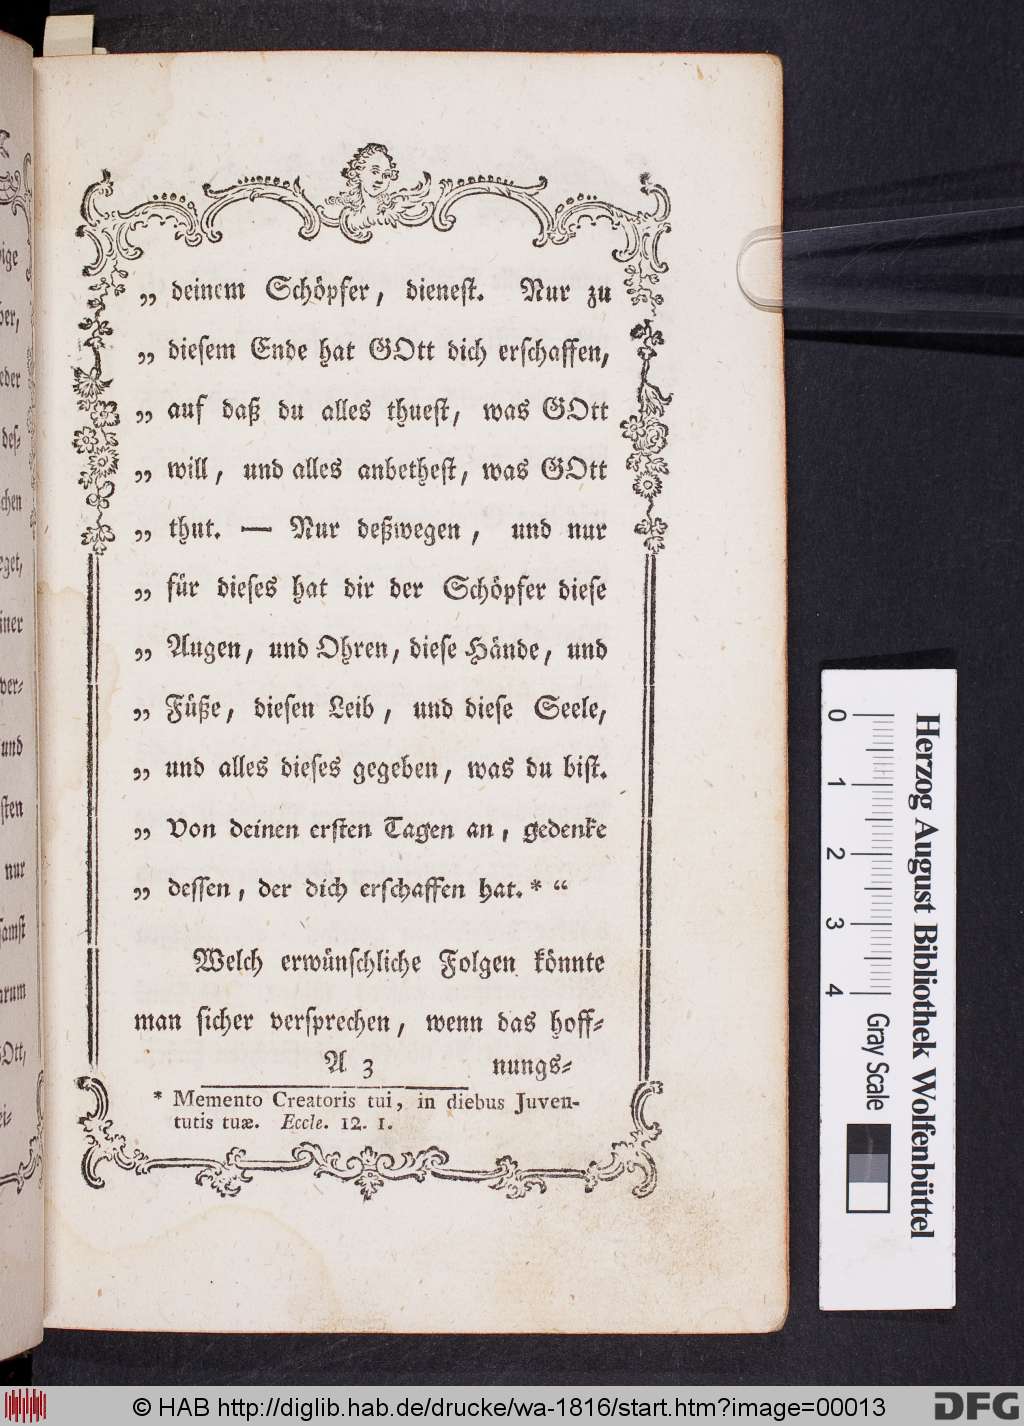 „ deinem Schöpfer, dienest. Nur zu
„ diesem Ende hat GOtt dich erschaffen,
„ auf daß du alles thuest, was GOtt
„ will, und alles anbethest, was GOtt
„ thut. — Nur deßwegen, und nur
„ für dieses hat dir der Schöpfer diese
„ Augen, und Ohren, diese Hände, und
„ Füße, diesen Leib, und diese Seele,
„ und alles dieses gegeben, was du bist.
„ Von deinen ersten Tagen an, gedenke
„ dessen, der dich erschaffen hat.* “
Welch erwünschliche Folgen könnte
man sicher versprechen, wenn das hoff-
A 3 nungs-
* Memento Creatoris tui, in diebus Juven-
tutis tuæ. Eccle. 12. 1.
0 1 2 3 4
Herzog August Bibliothek Wolfenbüttel
Gray Scale
© HAB http://diglib.hab.de/drucke/wa-1816/start.htm?image=00013
DFG